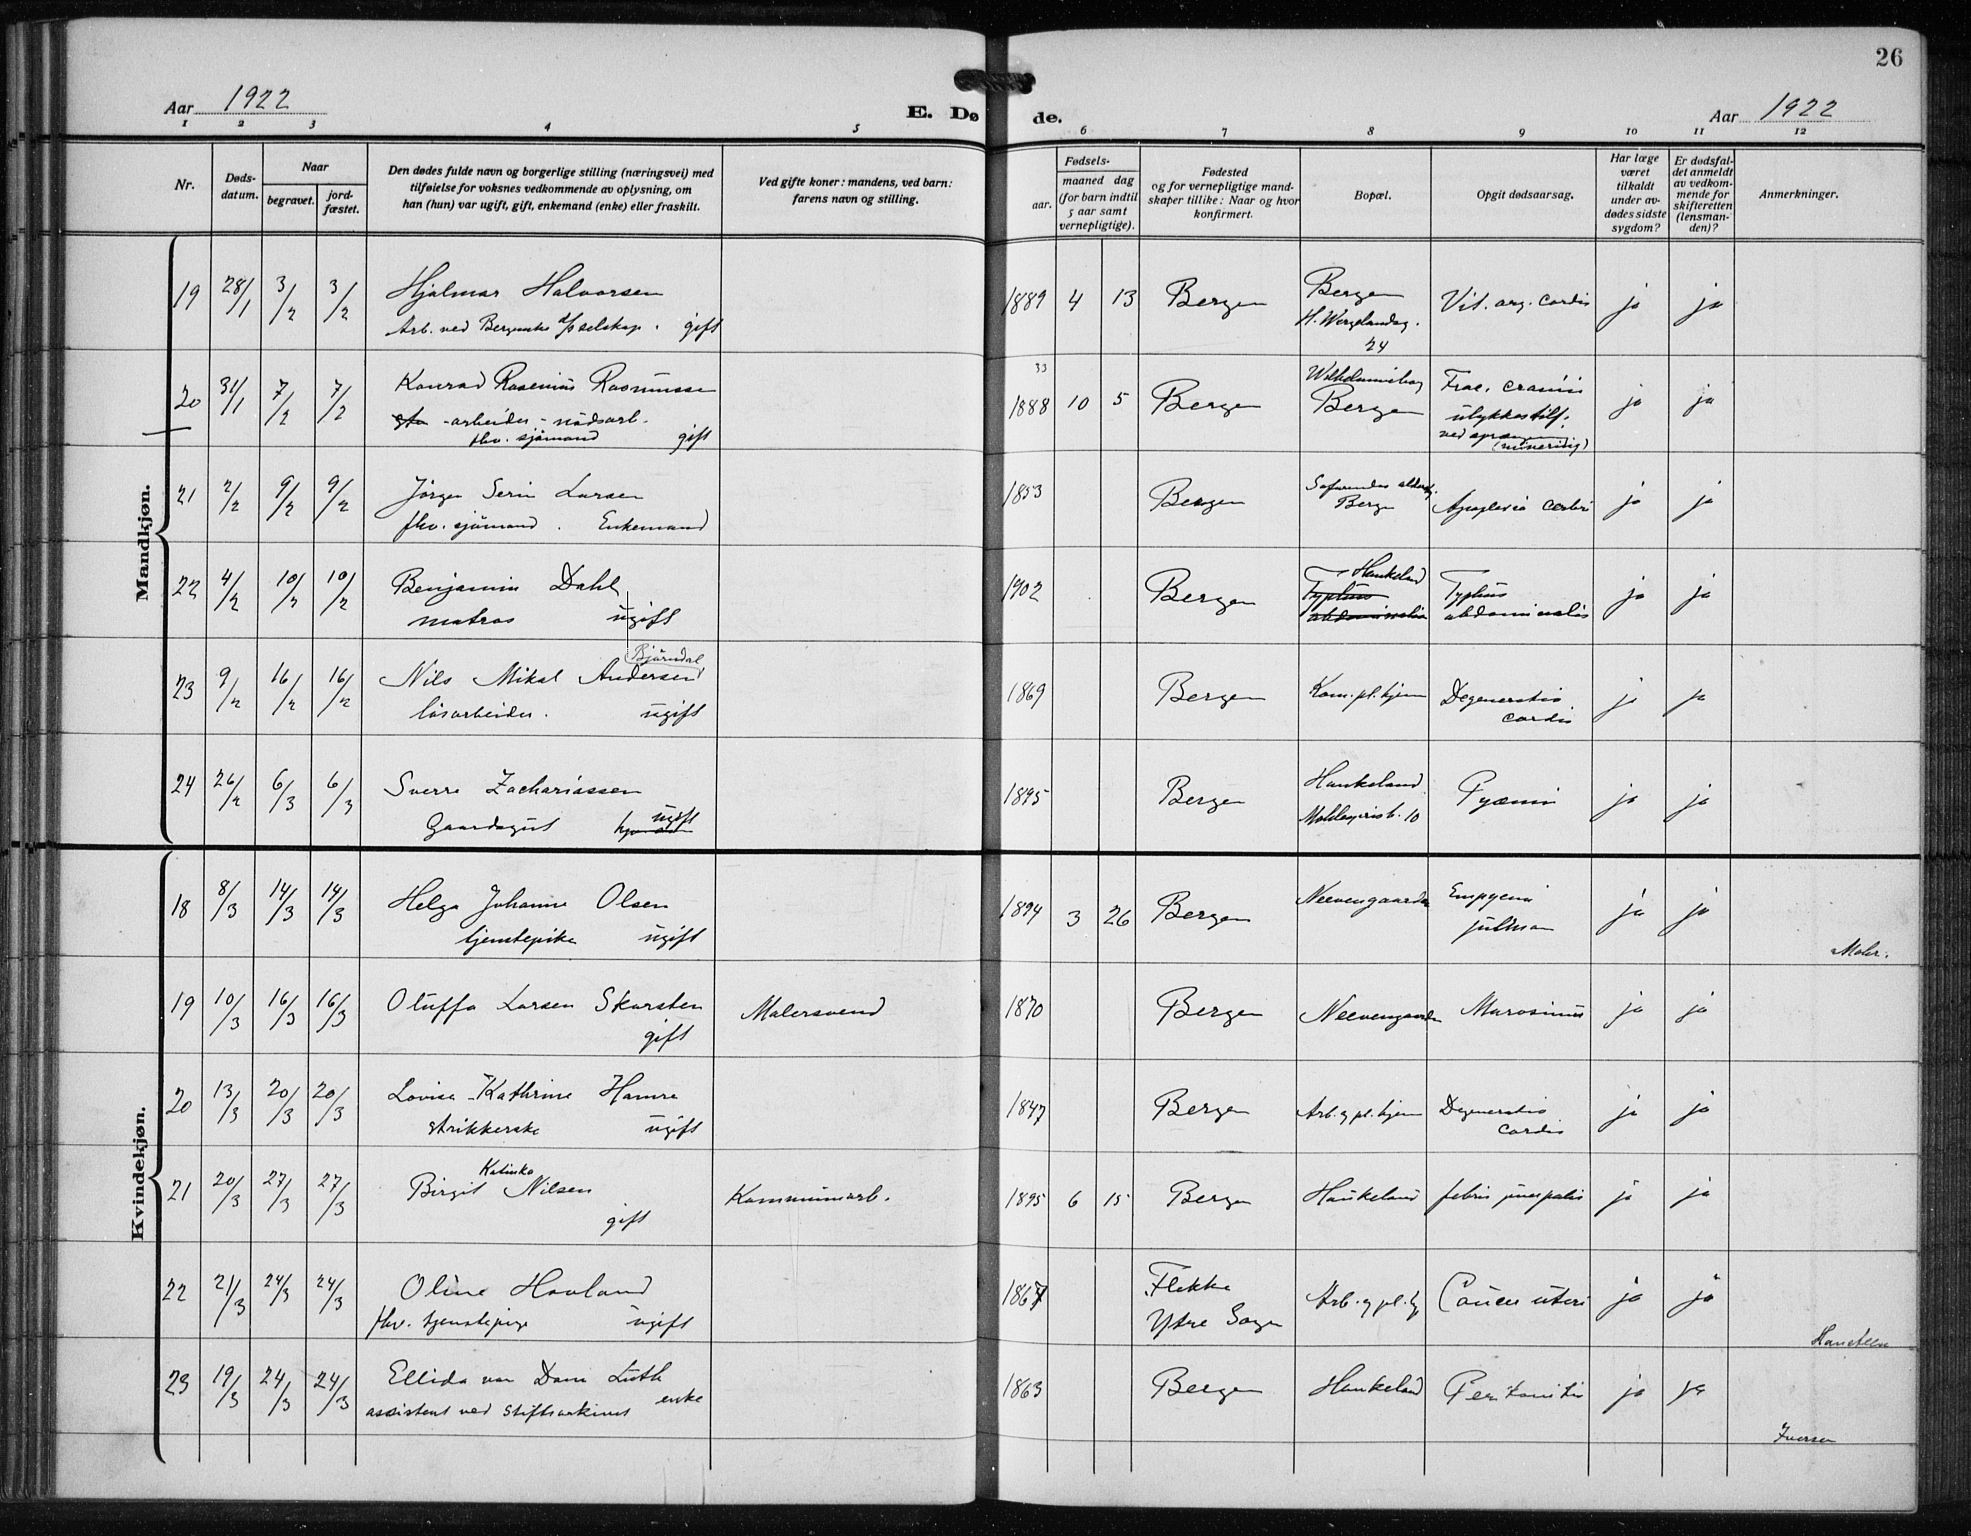 26
Aar 1922
E. Dø
de.
Aar 1922
1 2 3 4 5 6 7 8 9 10 11 12
Nr.
Døds-
datum.
Naar
begravet.
jord-
fæstet.
Den dødes fulde navn og borgerlige stilling (næringsvei) med
tilføielse for voksnes vedkommende av oplysning, om
han (hun) var ugift, gift, enkemand (enke) eller fraskilt.
Ved gifte koner: mandens, ved barn:
farens navn og stilling.
Fødsels-
aar.
maaned dag
(for barn indtil
5 aar samt
vernepligtige).
Fødested
og for vernepligtige mand-
skaper tillike: Naar og hvor
konfirmert.
Bopæl.
Opgit dødsaarsag.
Har læge
været
tilkaldt
under av-
dødes sidste
sygdom?
Er dødsfal-
det anmeldt
av vedkom-
mende for
skifteretten
(lensman-
den)?
Anmerkninger.
Mandkjøn.
19 28/1 3/2 3/2 Hjalmar Halvorsen
Arb. ved Bergenske d/s selskap. gift
1889 4 13 Bergen
Bergen
H. Wergelandsg.
24
Vit. org. cordis
ja ja
20 31/1 7/2 7/2 Konrad Rasmussen
arbeider - nødsarb.
fhv. sjømand gift
33
1888 10 5 Bergen
Bergen
Frac. cranii
ulykkestilf.
ja ja
21 2/2 9/2 9/2 Jörgen Larsen
fhv. sjømand. Enkemand
1853 Bergen
Bergen
Apoplexia cerebri
ja ja
22 4/2 10/2 10/2 Benjamin Dahl
matros ugift
1902 Bergen
Haukeland
Typhus
abdominalis
Typhus
abdominalis
ja ja
23 9/2 16/2 16/2 Nils Mikal Andersen
Bjørndal
løsarbeider. ugift
1869 Bergen
Kom. pl. hjem
Degeneratio
cordis
ja ja
24 26/2 6/3 6/3 Sverre Zachariassen
Gaardsgut ugift
1895 Bergen
Haukeland
10
Pyæmi
ja ja
Kvindekjøn.
18 8/3 14/3 14/3 Helga Johanne Olsen
tjenstepike ugift
1894 3 26 Bergen
Neevengaarden
Empyema
ja ja
Maler.
19 10/3 16/3 16/3 Oluffa Larsen Skarsten
gift
Malersvend
1870 Bergen
Neevengaarden
Marasmus
ja ja
20 13/3 20/3 20/3 Lovise Kathrine Hamre
strikkerske ugift
1847 Bergen
Arb. og pl. hjem
Degeneratio
cordis
ja ja
21 20/3 27/3 27/3 Birgit Katinka Nilsen
gift
Kommunearb.
1895 6 15 Bergen
Haukeland
febris puerperalis
ja ja
22 21/3 24/3 24/3 Oline Hovland
fhv. tjenstepige ugift
1867 Flekke
Ytre Sogn
Arb. og pl. hj.
Cancer uteri
ja ja
23 19/3 24/3 24/3 Ellida van Dam Luth
assistent ved Stiftsarkivet enke
1863 Bergen
Haukeland
Peritonitis
ja ja